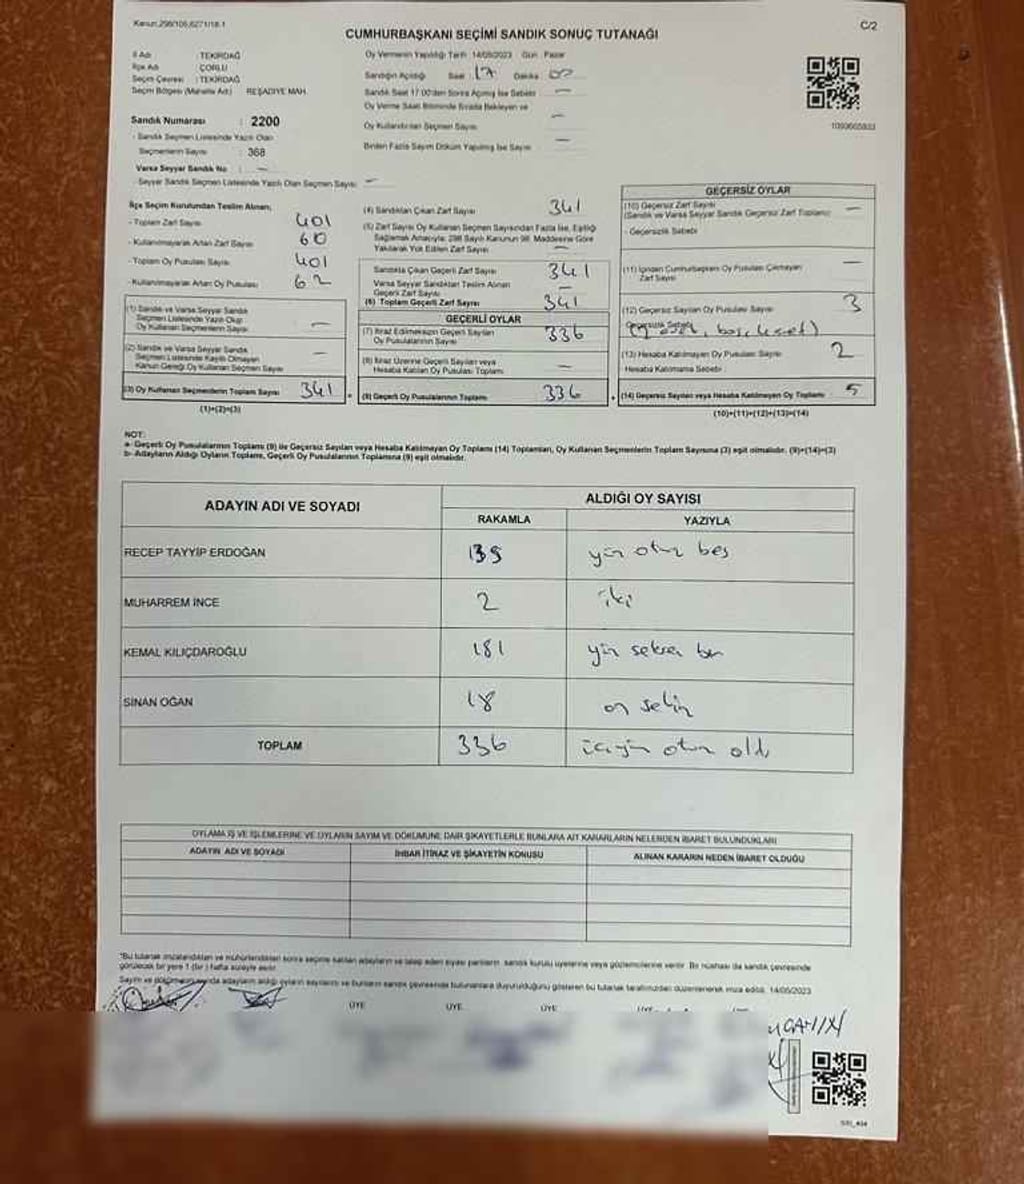 Kanun:298/105,6271/18-1
C/2
CUMHURBAŞKANI SEÇİMİ SANDIK SONUÇ TUTANAĞI
İl Adı : TEKİRDAĞ
İlçe Adı : ÇORLU
Seçim Çevresi : TEKİRDAĞ
Seçim Bölgesi (Mahalle Adı) REŞADİYE MAH.
Sandık Numarası : 2200
- Sandık Seçmen Listesinde Yazılı Olan
Seçmenlerin Sayısı : 368
Varsa Seyyar Sandık No : —
- Seyyar Sandık Seçmen Listesinde Yazılı Olan Seçmen Sayısı : —
Oy Vermenin Yapıldığı Tarih 14/05/2023 Gün : Pazar
Sandığın Açıldığı Saat : 17 Dakika
Sandık Saat 17.00'den Sonra Açılmış İse Sebebi : —
Oy Verme Saati Bitiminde Sırada Bekleyen ve
Oy Kullandırılan Seçmen Sayısı —
Birden Fazla Sayım Döküm Yapılmış İse Sayısı —
İlçe Seçim Kurulundan Teslim Alınan;
- Toplam Zarf Sayısı 401
- Kullanılmayarak Artan Zarf Sayısı 60
- Toplam Oy Pusulası Sayısı 401
- Kullanılmayarak Artan Oy Pusulası 62
(1) Sandık ve Varsa Seyyar Sandık
Seçmen Listesinde Yazılı Olup
Oy Kullanan Seçmenlerin Sayısı —
(2) Sandık ve Varsa Seyyar Sandık
Seçmen Listesinde Kayıtlı Olmayan
Kanun Gereği Oy Kullanan Seçmen Sayısı —
(3) Oy Kullanan Seçmenlerin Toplam Sayısı 341
(1)+(2)=(3)
(4) Sandıktan Çıkan Zarf Sayısı 341
(5) Zarf Sayısı Oy Kullanan Seçmen Sayısından Fazla İse, Eşitliği
Sağlamak Amacıyla; 298 Sayılı Kanunun 98. Maddesine Göre
Yakılarak Yok Edilen Zarf Sayısı —
Sandıkta Çıkan Geçerli Zarf Sayısı 341
Varsa Seyyar Sandıktan Teslim Alınan
Geçerli Zarf Sayısı —
(6) Toplam Geçerli Zarf Sayısı 341
GEÇERLİ OYLAR
(7) İtiraz Edilmeksizin Geçerli Sayılan
Oy Pusulalarının Sayısı 336
(8) İtiraz Üzerine Geçerli Sayılan veya
Hesaba Katılan Oy Pusulası Toplamı —
(9) Geçerli Oy Pusulalarının Toplamı 336
GEÇERSİZ OYLAR
(10) Geçersiz Zarf Sayısı —
(Sandık ve Varsa Seyyar Sandık Geçersiz Zarf Toplamı)
- Geçersizlik Sebebi
(11) İçinden Cumhurbaşkanı Oy Pusulası Çıkmayan
Zarf Sayısı —
(12) Geçersiz Sayılan Oy Pusulası Sayısı 3
Geçersizlik Sebebi
(13) Hesaba Katılmayan Oy Pusulası Sayısı 2
Hesaba Katılmama Sebebi :
(14) Geçersiz Sayılan veya Hesaba Katılmayan Oy Toplamı 5
(10)+(11)+(12)+(13)=(14)
NOT:
a- Geçerli Oy Pusulalarının Toplamı (9) ile Geçersiz Sayılan veya Hesaba Katılmayan Oy Toplamı (14) Toplamları, Oy Kullanan Seçmenlerin Toplam Sayısına (3) eşit olmalıdır. (9)+(14)=(3)
b- Adayların Aldığı Oyların Toplamı, Geçerli Oy Pusulalarının Toplamına (9) eşit olmalıdır.
ADAYIN ADI VE SOYADI ALDIĞI OY SAYISI
RAKAMLA YAZIYLA
RECEP TAYYİP ERDOĞAN 135 yüz otuz beş
MUHARREM İNCE 2 iki
KEMAL KILIÇDAROĞLU 181 yüz seksen bir
SİNAN OĞAN 18 on sekiz
TOPLAM 336 üçyüz otuz altı
OYLAMA İŞ VE İŞLEMLERİNE VE OYLARIN SAYIM VE DÖKÜMÜNE DAİR ŞİKAYETLERLE BUNLARA AİT KARARLARIN NELERDEN İBARET BULUNDUKLARI
ADAYIN ADI VE SOYADI İHBAR İTİRAZ VE ŞİKAYETİN KONUSU ALINAN KARARIN NEDEN İBARET OLDUĞU
*Bu tutanak imzalandıktan ve mühürlendikten sonra seçime katılan adayların ve talep eden siyasi partilerin sandık kurulu üyelerine veya gözlemcilerine verilir. Bir nüshası da sandık çevresinde
görülecek bir yere 1 (bir) hafta süreyle asılır.
14/05/2023
ÜYE ÜYE ÜYE